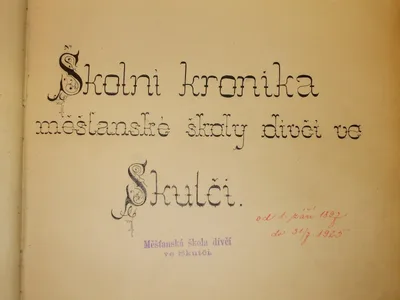 Školní kronika
měšťanské školy dívčí ve
Skutči.
Měšťanská škola dívčí
ve Skutči.
od 1. září 1897
do 31/7 1925